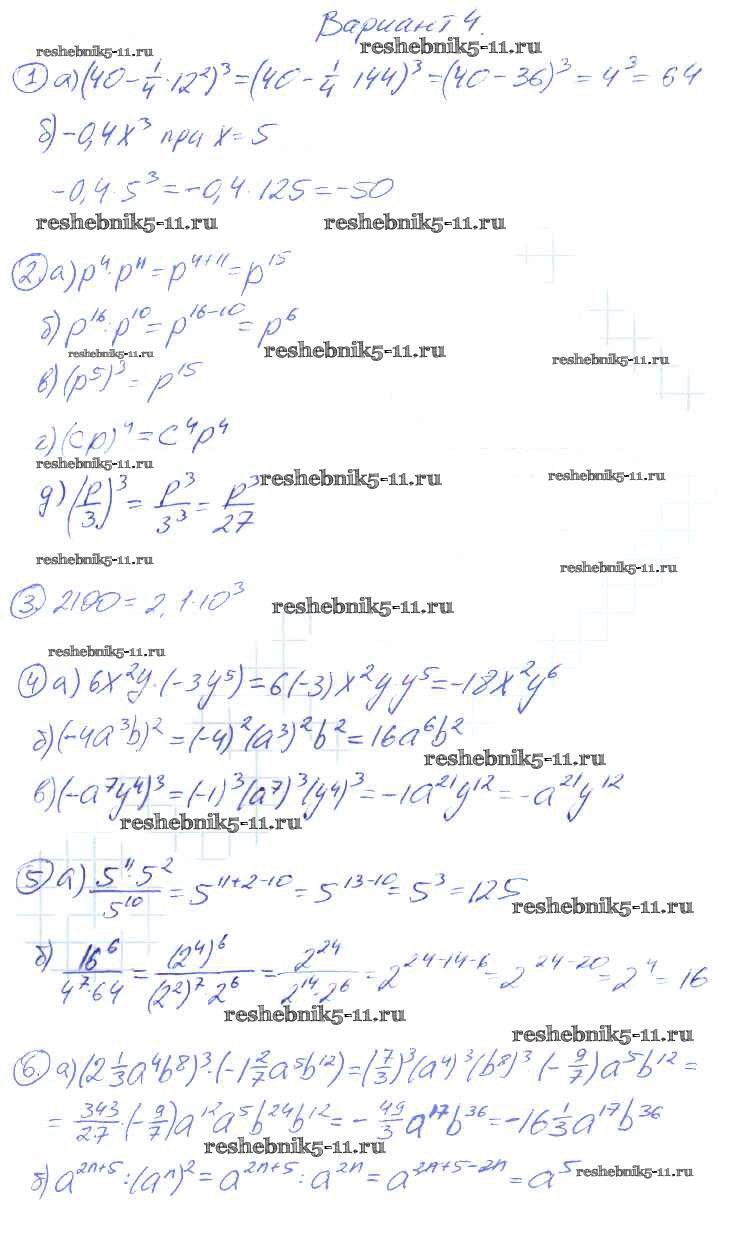 Вариант 4.
reshebnik5-11.ru reshebnik5-11.ru
1 а) (40 - 1/4 · 12²)³ = (40 - 1/4 144)³ = (40 - 36)³ = 4³ = 64
б) -0,4x³ при x = 5
-0,4 · 5³ = -0,4 · 125 = -50
reshebnik5-11.ru reshebnik5-11.ru
2. а) p⁴ · p¹¹ = p⁴⁺¹¹ = p¹⁵
б) p¹⁶ : p¹⁰ = p¹⁶⁻¹⁰ = p⁶
reshebnik5-11.ru reshebnik5-11.ru reshebnik5-11.ru
в) (p⁵)³ = p¹⁵
г) (cp)⁴ = c⁴p⁴
reshebnik5-11.ru reshebnik5-11.ru reshebnik5-11.ru
д) (p/3)³ = p³/3³ = p³/27
reshebnik5-11.ru reshebnik5-11.ru
3. 2100 = 2,1 · 10³
reshebnik5-11.ru
reshebnik5-11.ru
4 а) 6x²y · (-3y⁵) = 6(-3)x²y·y⁵ = -18x²y⁶
б) (-4a³b)² = (-4)²(a³)²b² = 16a⁶b²
reshebnik5-11.ru
в) (-a⁷y⁴)³ = (-1)³(a⁷)³(y⁴)³ = -1a²¹y¹² = -a²¹y¹²
reshebnik5-11.ru
5 а) 5¹¹·5²/5¹⁰ = 5¹¹⁺²⁻¹⁰ = 5¹³⁻¹⁰ = 5³ = 125
reshebnik5-11.ru
б) 16⁶/4⁷·64 = (2⁴)⁶/(2²)⁷·2⁶ = 2²⁴/2¹⁴·2⁶ = 2²⁴⁻¹⁴⁻⁶ = 2²⁴⁻²⁰ = 2⁴ = 16
reshebnik5-11.ru
reshebnik5-11.ru
6. а) (2 1/3 a⁴b⁸)³ · (-1 2/7 a⁵b¹²) = (7/3)³(a⁴)³(b⁸)³ · (-9/7)a⁵b¹² =
= 343/27 · (-9/7)a¹²a⁵b²⁴b¹² = -49/3 a¹⁷b³⁶ = -16 1/3 a¹⁷b³⁶
reshebnik5-11.ru
б) a²ⁿ⁺⁵ : (aⁿ)² = a²ⁿ⁺⁵ : a²ⁿ = a²ⁿ⁺⁵⁻²ⁿ = a⁵
reshebnik5-11.ru